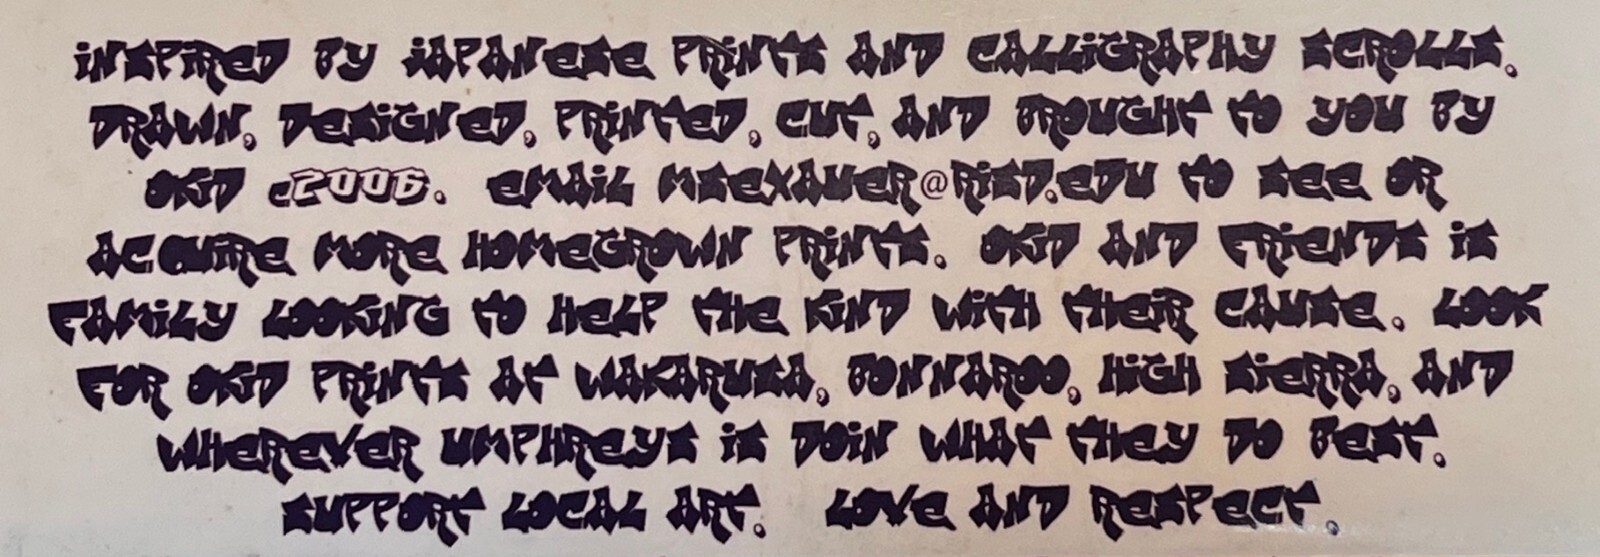 INSPIRED BY JAPANESE PRINTS AND CALLIGRAPHY SCROLLS.
DRAWN, DESIGNED, PRINTED, CUT, AND BROUGHT TO YOU BY
OKID c2006. EMAIL MSEXAUER@RISD.EDU TO SEE OR
ACQUIRE MORE HOMEGROWN PRINTS. OKID AND FRIENDS IS
FAMILY LOOKING TO HELP THE KIND WITH THEIR CAUSE. LOOK
FOR OKID PRINTS AT WAKARUSA, BONNAROO, HIGH SIERRA, AND
WHEREVER UMPHREYS IS DOIN WHAT THEY DO BEST.
SUPPORT LOCAL ART. LOVE AND RESPECT.